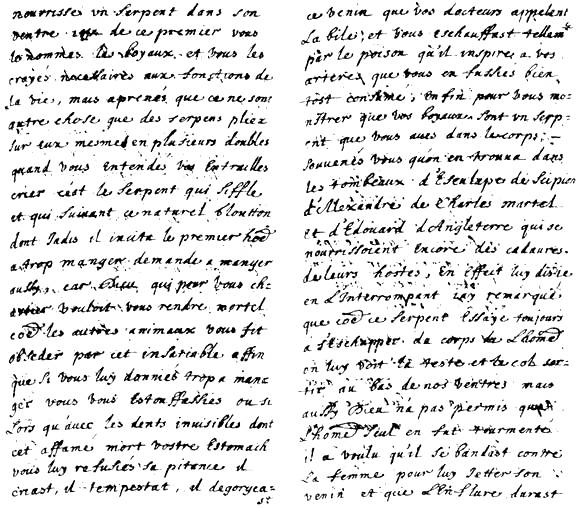 nourrisse un serpent dans son
ventre de ce premier vous
les nommés les boyaux et vous les
croyés necessaires aux fonctions de
la vie, mais aprenés que ce ne sont
autre chose que des serpens pliez
sur eux mesmes en plusieurs doubles
quand vous entendés vos Entrailles
crier c'est le serpent qui siffle
et qui suivant ce naturel glouton
dont Jadis il incita le premier hoē
a trop manger demande a manger
aussy, car Dieu qui pour vous ch-
astier vouloit vous rendre mortel
coē les autres animaux vous fit
obseder par cet insatiable affin
que si vous luy donniés trop a man
ger vous vous Estouffassiés ou si
Lors qu'avec les dents invisibles dont
cet affamé mort vostre Estomach
vous luy refusiés sa pitance il
criast, il tempestat, il degorgea-
st
ce venin que vos docteurs appelent
La bile, et vous eschauffast tellemt
par le poison qu'il inspire a vos
arteres que vous en fussiés bien
tost consumé; enfin pour vous mo-
nstrer que vos boyaux sont un serp-
ent que vous aués dans le corps; -
souvenés vous qu'on en trouua dans
les tombeaux d'Esculape de Scipion
d'Alexandre de Charles martel
et d'Edouard d'Angleterre qui se
nourrissoient encore des cadaures
de leurs hostes, En effet luy disie
en L'interrompant Jay remarqué
que coē ce serpent Essaye toujours
a s'Eschapper du corps de L'homē
on luy voit la teste et le col sor-
tir au bas de nos ventres mais
aussy Dieu na pas permis que
L'homē seul en fut tourmenté
il a voulu qu'il se bandast contre
La femme pour luy Jetter son
venin et que L'Enflure durast